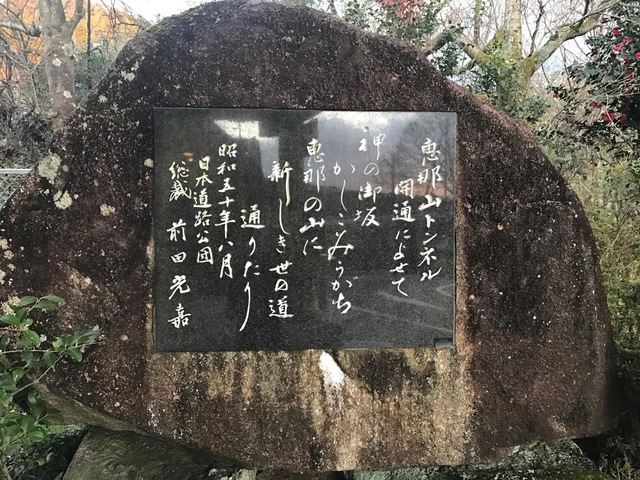 恵那山トンネル
開通によせて
神の御坂
かしこみうがち
恵那の山に
新しき世の道
通りたり
昭和五十年八月
日本道路公団
総裁 前田光嘉